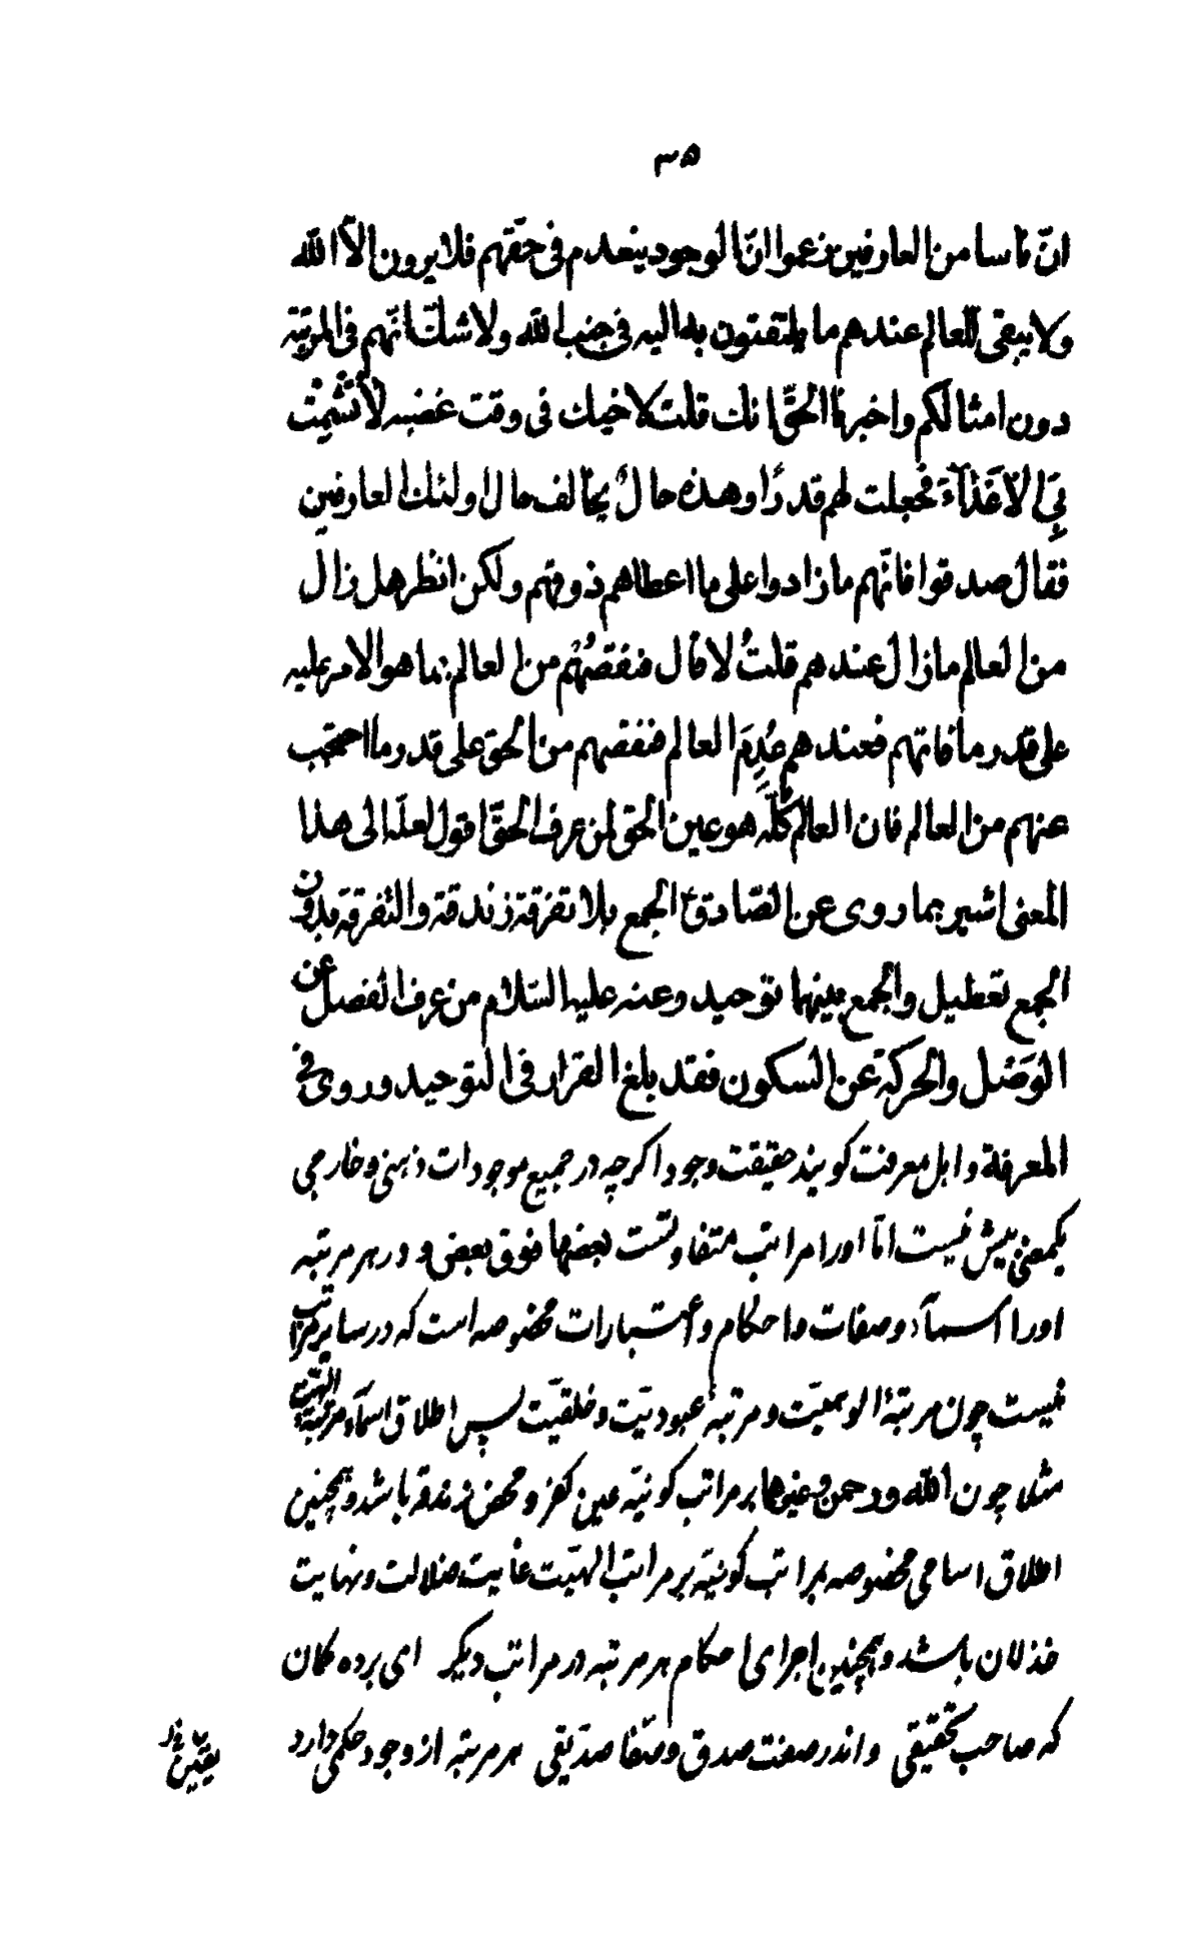 ٣٥
انّ ناسا من العارفين زعموا انّ الوجود ينعدم فى حقّهم فلا يرون الّا الله
ولا يبقى للعالم عندهم ما يلتفتون به اليه فى جنب الله ولا شكّ انّهم فى المرتبة
دون امثالكم واخبرنا الحقّ انك قلت لاخيك فى وقت غضبه لا تُشْمِتْ
بِىَ الْاَعْدَآءَ فجعلت لهم قدرًا وهذه حالٌ يخالف حال اولئك العارفين
فقال صدقوا فانّهم ما زادوا على ما اعطاهم ذوقهم ولكن انظر هل زال
من العالم ما زال عندهم قلتُ لا قال فنقصُهُم من العالم بما هو الامر عليه
على قدر ما فاتهم فعندهم عُدِمَ العالم فنقصهم من الحق على قدر ما احتجب
عنهم من العالم فان العالم كُلّه هو عين الحق لمن عرف الحقّ اقول لعلّه الى هذا
المعنى اشير بما روى عن الصّادق ع الجمع بلا تفرقة زندقة والتفرقة بدون
الجمع تعطيل والجمع بينهما توحيد وعنه عليه السّلام من عرف الفصل عن
الوَصْل والحركة عن السكون فقد بلغ القرار فى التوحيد وروى فى
المعرفة و اهل معرفت كويند حقيقت وجود اكرچه در جميع موجودات ذهنى و خارجى
يكمعنى بيش نيست امّا اورا مراتب متفاوتست بعضها فوق بعض و در هر مرتبه
اورا اسمآء و صفات و احكام و اعتبارات مخصوصه است كه در ساير مراتب
نيست چون مرتبهٔ الوهيّت و مرتبهٔ عبوديّت و خلقيّت پس اطلاق اسمآء مرتبهٔ الهيّت
مثلا چون الله و رحمن و غيرها بر مراتب كونيّه عين كفر و محض زندقه باشد و همچنين
اطلاق اسامى مخصوصه بمراتب كونيّه بر مراتب الهيّت غايت ضلالت و نهايت
خذلان باشد و همچنين اجراى احكام هر مرتبه در مراتب ديكر اى برده كمان
كه صاحب تحقيقى و اندر صفت صدق و صفا صدّيقى هر مرتبه از وجود حكمى دارد